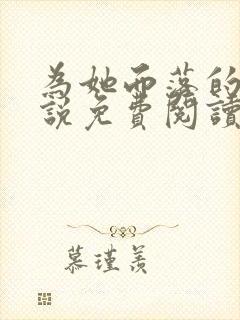 為她而落的
說免費閱讀
慕瑾羨